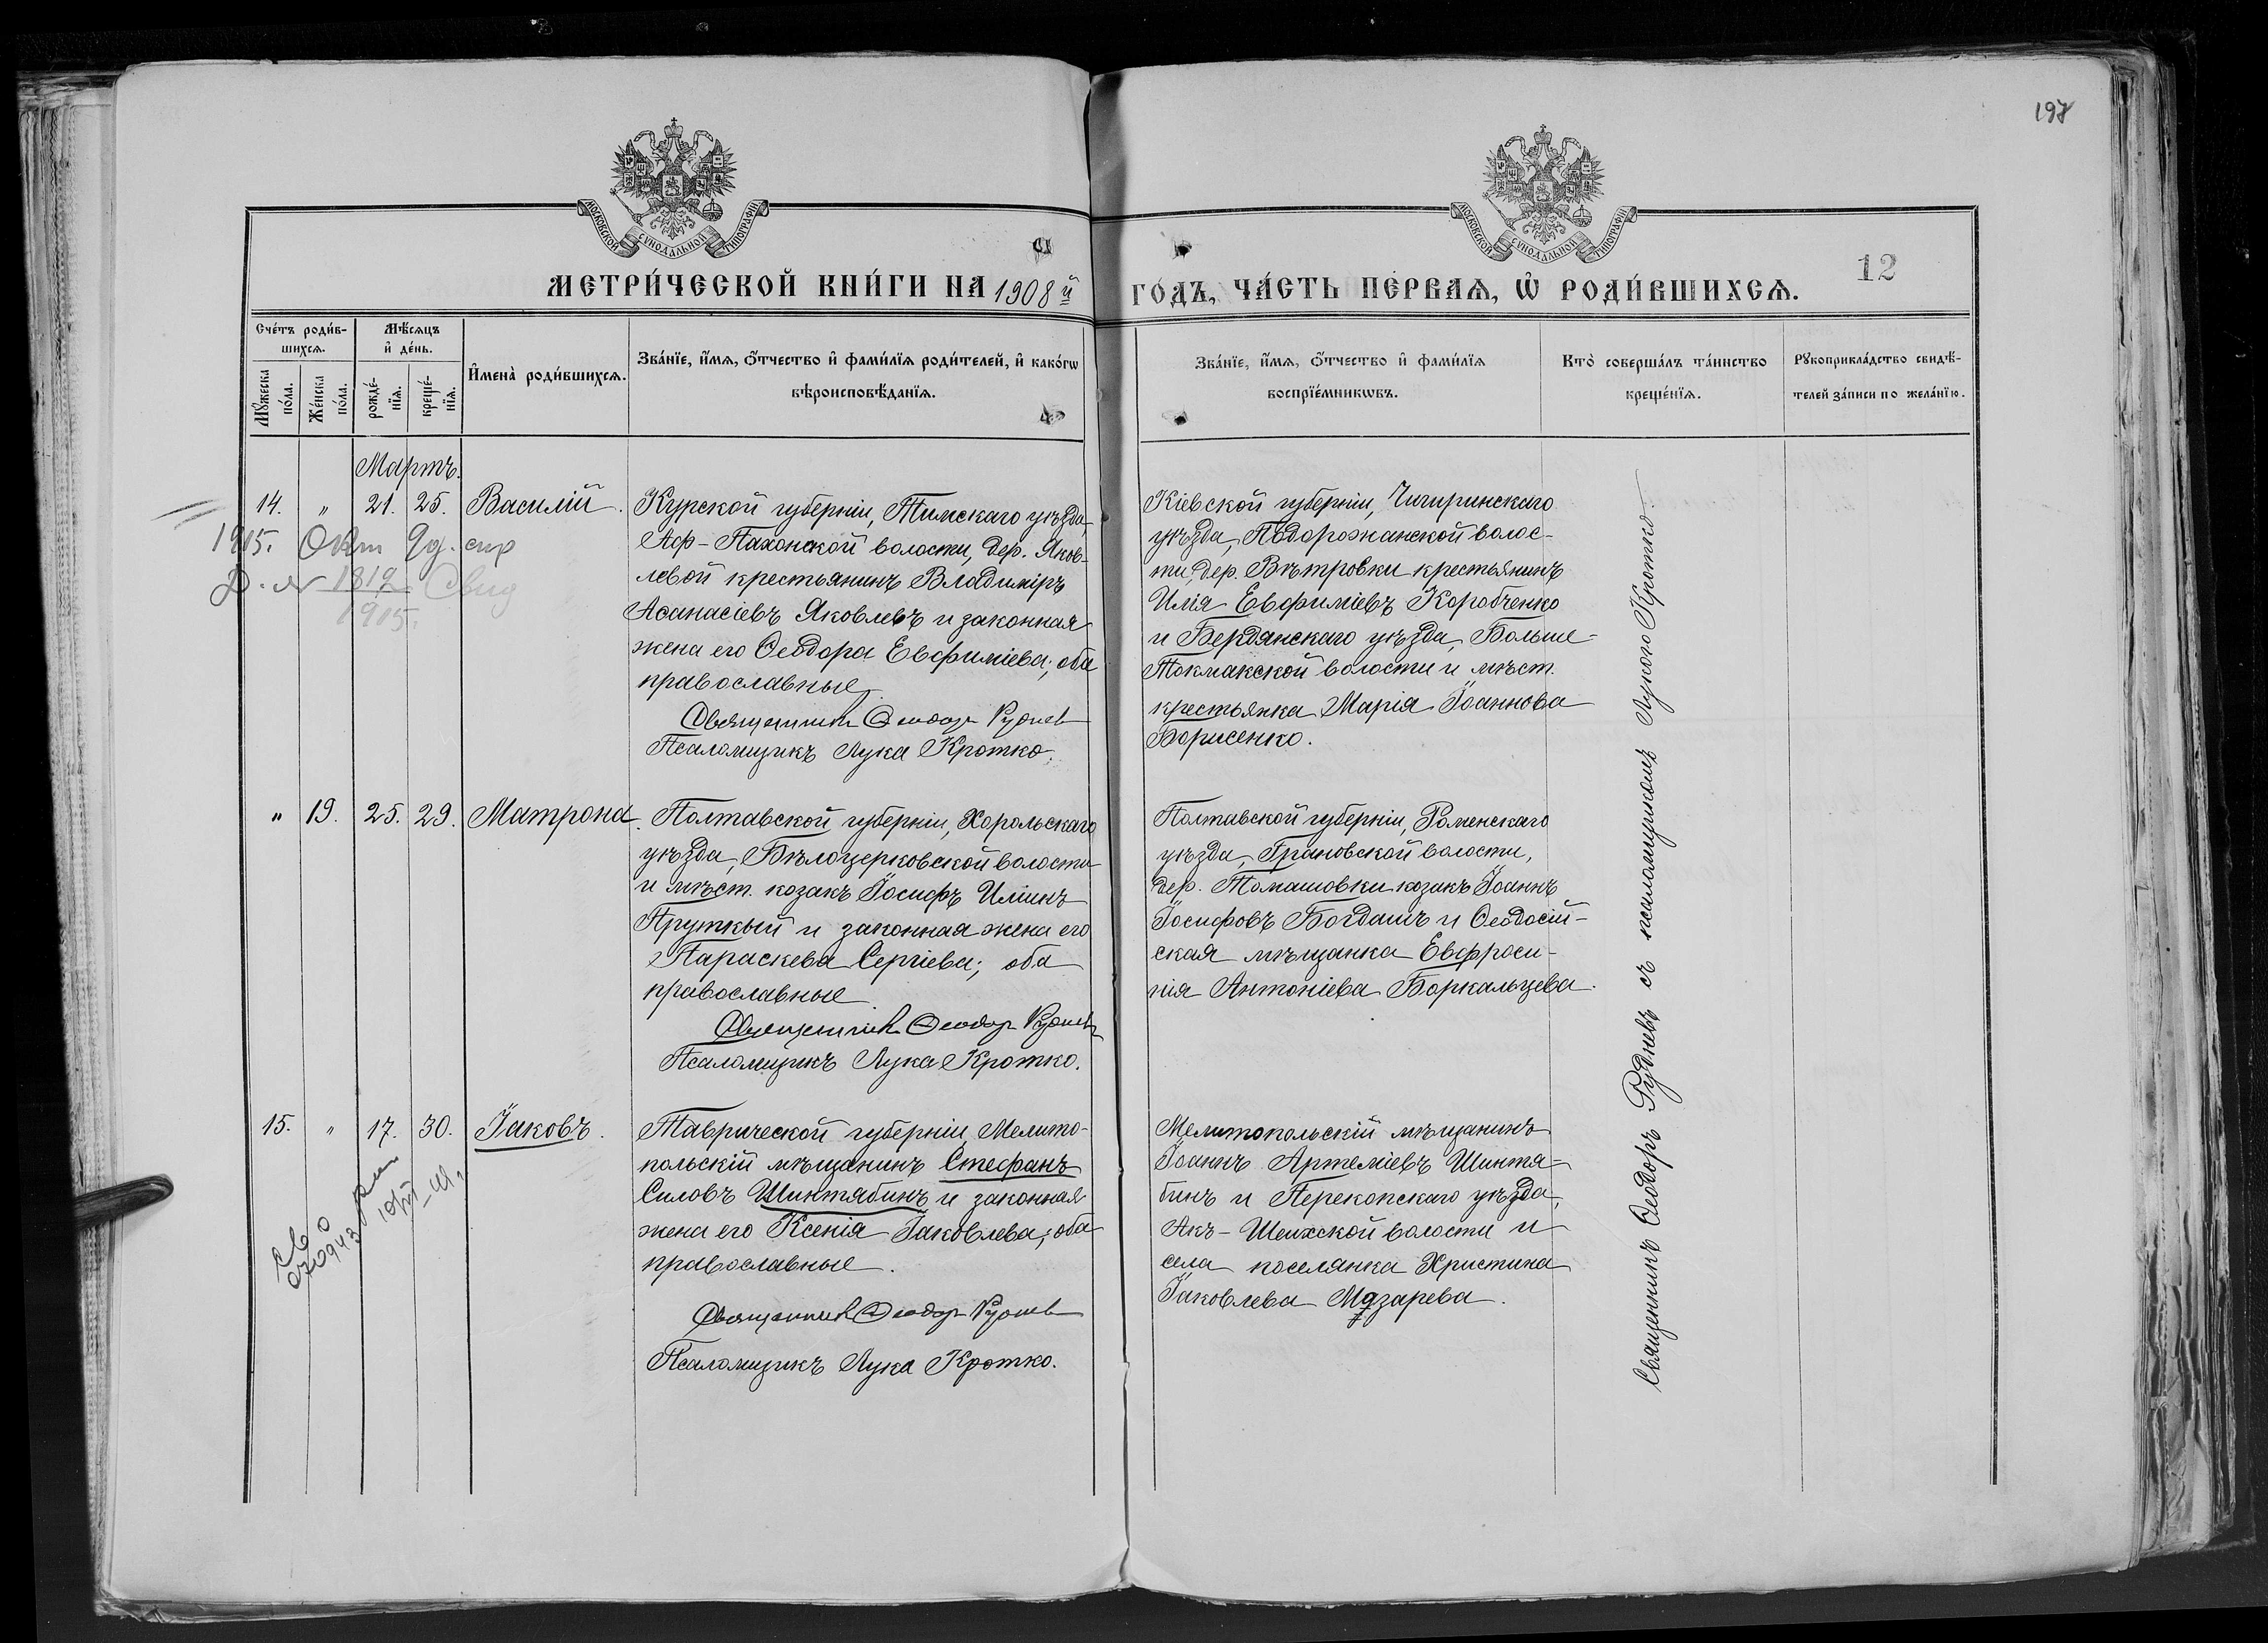 197
МОСКОВСКОЙ СѴНОДАЛЬНОЙ ТИПОГРАФІИ
МОСКОВСКОЙ СѴНОДАЛЬНОЙ ТИПОГРАФІИ
МЕТРИ́ЧЕСКОЙ КНИ́ГИ НА 1908 й
ГО́ДЪ, ЧА́СТЬ ПЕ́РВАѦ, Ѡ҆ РОДИ́ВШИХСѦ.
12
Сче́тъ роди́в-
шихсѧ.
Мꙋ́жеска
по́ла.
Же́нска
по́ла.
Мѣ́сѧцъ
и҆ де́нь.
рожде́-
нїѧ.
креще́-
нїѧ.
И҆мена̀ роди́вшихсѧ.
Зва́нїе, и҆́мѧ, ѻ҆́тчество и҆ фами́лїѧ роди́телей, и҆ како́гѡ
вѣроисповѣ́данїѧ.
Зва́нїе, и҆́мѧ, ѻ҆́тчество и҆ фами́лїѧ
воспрїе́мникѡвъ.
Кто̀ соверша́лъ та́инство
креще́нїѧ.
Рꙋкоприкла́дство свидѣ́-
телей за́писи по жела́нїю.
Мартъ.
14. " 21. 25. Василій.
Курской губерніи, Тимскаго уѣзда,
Аф-Пахонской волости, дер. Яков-
левой крестьянинъ Владиміръ
Аѳанасіевъ Яковлевъ и законная
жена его Ѳеодора Евфиміева; оба
православные.
Священникъ Ѳеодоръ Руднев
Псаломщикъ Лука Кротко.
Кіевской губерніи, Чигиринскаго
уѣзда, Подорожанской волос-
ти, дер. Вѣтровки крестьянинъ
Илія Евфиміевъ Коробченко
и Бердянскаго уѣзда, Больше-
Токмакской волости и мѣст.
крестьянка Марія Іоаннова
Борисенко.
1915. Окт 9д. спр
Д. № 1812 Свид
1915.
" 19. 25. 29. Матрона.
Полтавской губерніи, Хорольскаго
уѣзда, Бѣлоцерковской волости
и мѣст. козакъ Іосифъ Иліинъ
Пруткый и законная жена его
Параскева Сергіева; оба
православные
Священникъ Ѳеодоръ Рудневъ
Псаломщикъ Лука Кротко.
Полтавской губерніи, Роменскаго
уѣзда, Грановской волости,
дер. Томашовки козакъ Іоаннъ
Іосифовъ Богдашъ и Ѳеодосій-
ская мѣщанка Евфроси-
нія Антоніева Боркальцева.
15. " 17. 30. Іаковъ.
Таврической губерніи Мелито-
польскій мѣщанинъ Стефанъ
Силовъ Шинтябинъ и законная
жена его Ксенія Іаковлева; оба
православные.
Священникъ Ѳеодоръ Руднев
Псаломщикъ Лука Кротко.
Мелитопольскій мѣщанинъ
Іоаннъ Артеміевъ Шинтя-
бинъ и Перекопскаго уѣзда,
Акъ-Шеихской волости и
села поселянка Христина
Іаковлева Мазарева.
Священникъ Ѳеодоръ Рудневъ съ псаломщикомъ Лукою Кротко